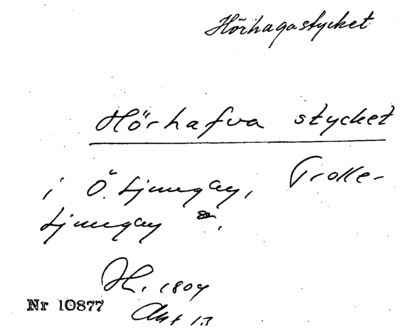 Hörhagastycket
Hörhafva stycket
i Ö. Ljungby, Trolle-
Ljungby
H. 1804
Nr 10877
Akt 13